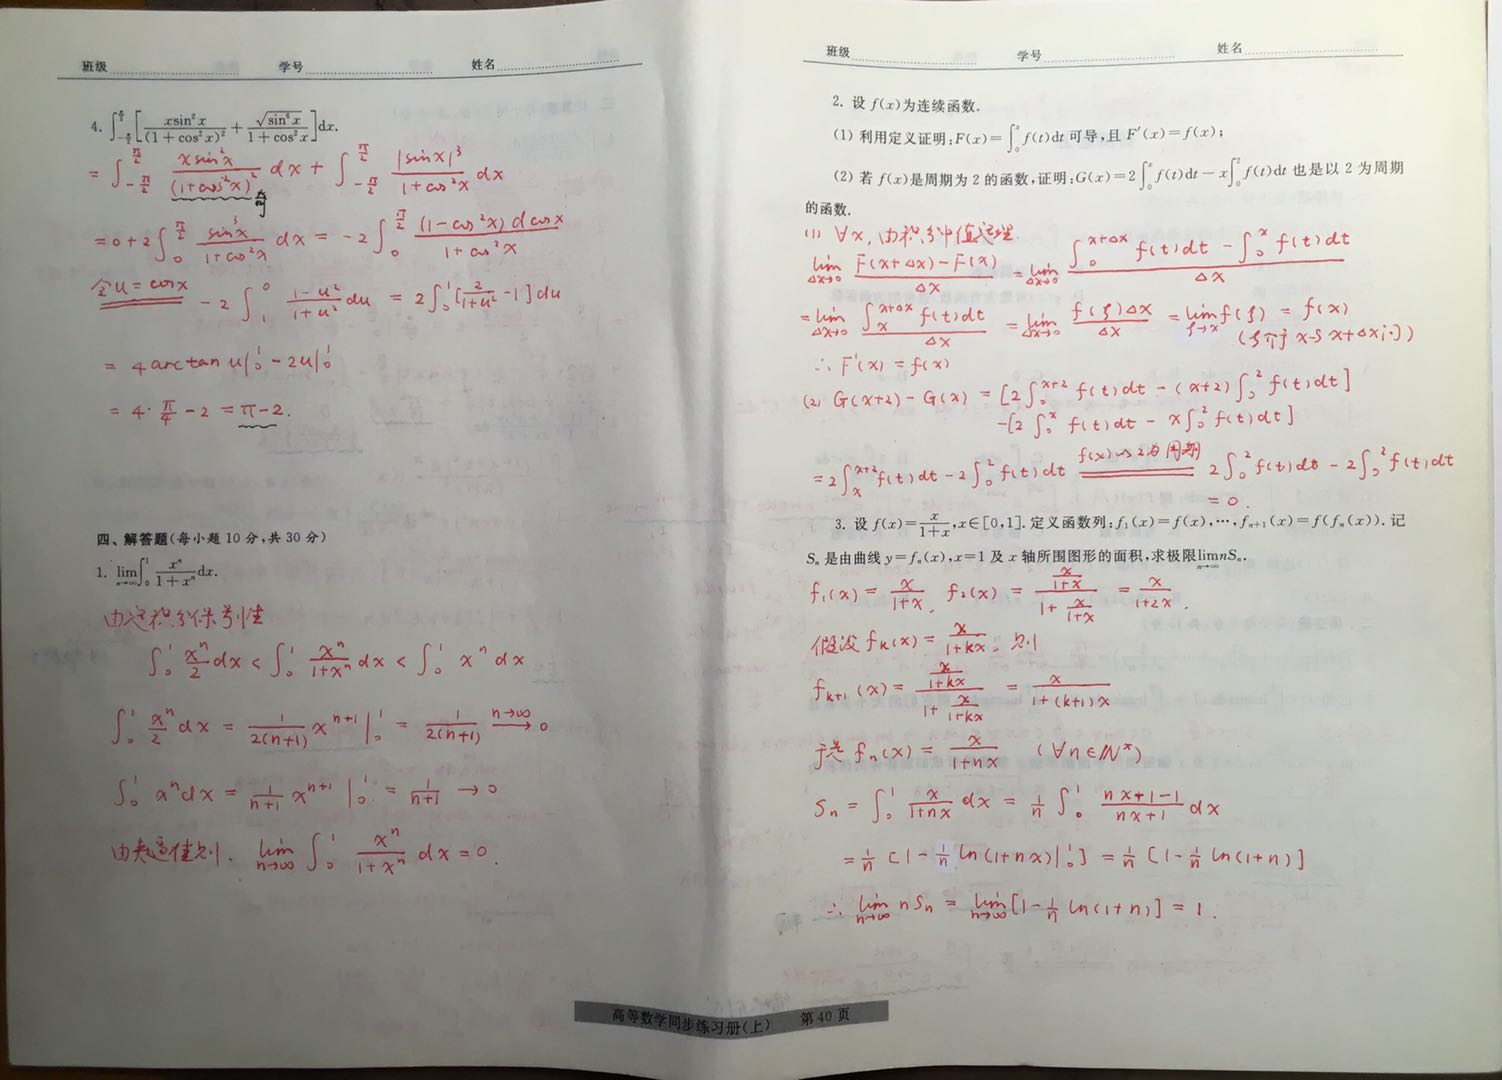 班级 学号 姓名
4. ∫_{-π/2}^{π/2} [ xsin²x/(1+cos²x)² + √(sin⁶x)/(1+cos²x) ] dx.
= ∫_{-π/2}^{π/2} xsin²x/(1+cos²x)² dx + ∫_{-π/2}^{π/2} |sinx|³/(1+cos²x) dx
= 0+2∫_0^{π/2} sin³x/(1+cos²x) dx = -2∫_0^{π/2} (1-cos²x)dcosx/(1+cos²x)
令u=cosx -2∫_1^0 (1-u²)/(1+u²) du = 2∫_0^1 [2/(1+u²) -1]du
= 4arctan u|_0^1 - 2u|_0^1
= 4·π/4 -2 = π-2.
四、解答题(每小题10分,共30分)
1. lim_{n→∞} ∫_0^1 xⁿ/(1+xⁿ) dx.
由定积分保号性
∫_0^1 xⁿ/2 dx < ∫_0^1 xⁿ/(1+xⁿ) dx < ∫_0^1 xⁿ dx
∫_0^1 xⁿ/2 dx = 1/(2(n+1)) x^{n+1}|_0^1 = 1/(2(n+1)) —n→∞→ 0
∫_0^1 xⁿdx = 1/(n+1) x^{n+1}|_0^1 = 1/(n+1) → 0
由夹逼准则. lim_{n→∞} ∫_0^1 xⁿ/(1+xⁿ) dx = 0.
班级 学号 姓名
2. 设 f(x)为连续函数.
(1) 利用定义证明:F(x)=∫_0^x f(t)dt 可导,且 F′(x)=f(x);
(2) 若 f(x)是周期为 2 的函数,证明:G(x)=2∫_0^x f(t)dt-x∫_0^2 f(t)dt 也是以 2 为周期
的函数.
(1) ∀x, 由积分中值定理
lim_{Δx→0} (F(x+Δx)-F(x))/Δx = lim_{Δx→0} (∫_0^{x+Δx} f(t)dt - ∫_0^x f(t)dt)/Δx
= lim_{Δx→0} ∫_x^{x+Δx} f(t)dt/Δx = lim_{Δx→0} f(ξ)Δx/Δx = lim_{ξ→x} f(ξ) = f(x)
(ξ介于x与x+Δx间)
∴ F′(x) = f(x)
(2) G(x+2)-G(x) = [2∫_0^{x+2} f(t)dt - (x+2)∫_0^2 f(t)dt]
-[2∫_0^x f(t)dt - x∫_0^2 f(t)dt]
= 2∫_x^{x+2} f(t)dt - 2∫_0^2 f(t)dt f(x)以2为周期 2∫_0^2 f(t)dt - 2∫_0^2 f(t)dt
= 0.
3. 设 f(x)=x/(1+x),x∈[0,1]. 定义函数列:f₁(x)=f(x),⋯,f_{n+1}(x)=f(f_n(x)). 记
S_n 是由曲线 y=f_n(x),x=1 及 x 轴所围图形的面积,求极限 lim_{n→∞} nS_n.
f₁(x) = x/(1+x), f₂(x) = (x/(1+x))/(1+x/(1+x)) = x/(1+2x).
假设 f_k(x) = x/(1+kx). 则
f_{k+1}(x) = (x/(1+kx))/(1+x/(1+kx)) = x/(1+(k+1)x)
于是 f_n(x) = x/(1+nx) (∀n∈N*)
S_n = ∫_0^1 x/(1+nx) dx = 1/n ∫_0^1 (nx+1-1)/(nx+1) dx
= 1/n [1 - 1/n ln(1+nx)|_0^1] = 1/n [1 - 1/n ln(1+n)]
∴ lim_{n→∞} nS_n = lim_{n→∞} [1 - 1/n ln(1+n)] = 1.
高等数学同步练习册(上) 第40页